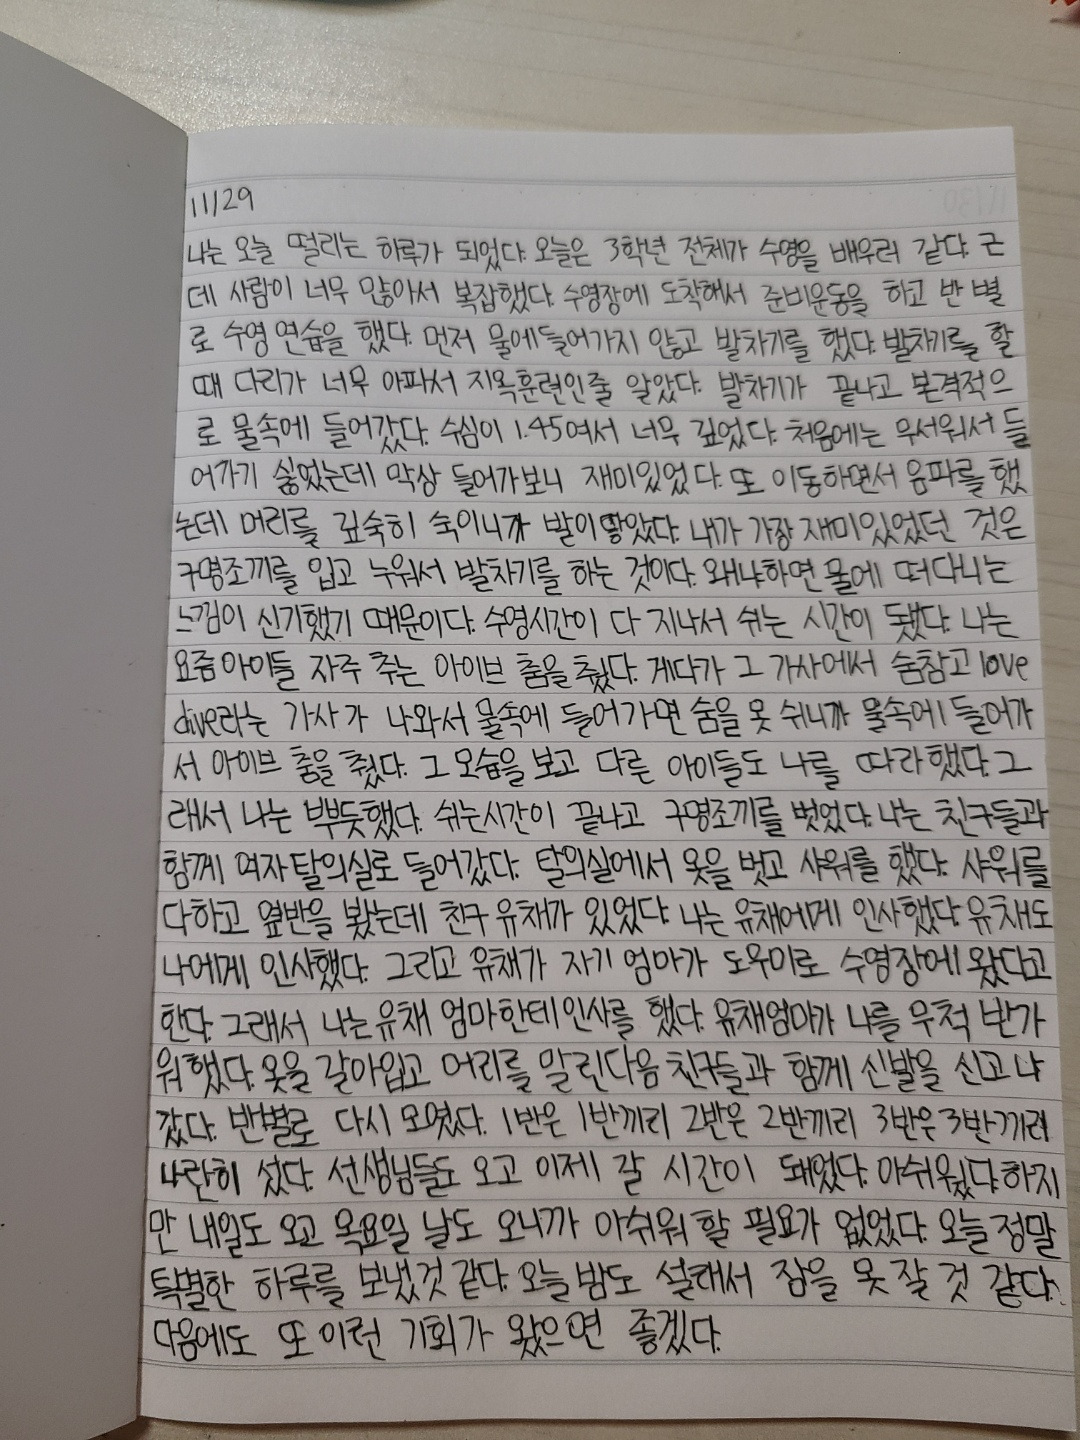 11/29
나는 오늘 떨리는 하루가 되었다. 오늘은 3학년 전체가 수영을 배우러 갔다. 근
데 사람이 너무 많아서 복잡했다. 수영장에 도착해서 준비운동을 하고 반 별
로 수영 연습을 했다. 먼저 물에들어가지 않고 발차기를 했다. 발차기를 할
때 다리가 너무 아파서 지옥훈련인줄 알았다. 발차기가 끝나고 본격적으
로 물속에 들어갔다. 수심이 1.45여서 너무 깊었다. 처음에는 무서워서 들
어가기 싫었는데 막상 들어가보니 재미있었다. 또 이동하면서 음파를 했
는데 머리를 깊숙히 숙이니까 발이 닿았다. 내가 가장 재미있었던 것은
구명조끼를 입고 누워서 발차기를 하는 것이다. 왜냐하면 물에 떠다니는
느낌이 신기했기 때문이다. 수영시간이 다 지나서 쉬는 시간이 됐다. 나는
요즘아이들 자주 추는 아이브 춤을 췄다. 게다가 그 가사에서 숨참고 love
dive라는 가사가 나와서 물속에 들어가면 숨을 못 쉬니까 물속에 들어가
서 아이브 춤을 췄다. 그 모습을 보고 다른 아이들도 나를 따라했다. 그
래서 나는 뿌듯했다. 쉬는시간이 끝나고 구명조끼를 벗었다. 나는 친구들과
함께 여자탈의실로 들어갔다. 탈의실에서 옷을 벗고 샤워를 했다. 샤워를
다하고 옆반을 봤는데 친구 유채가 있었다. 나는 유채에게 인사했다. 유채도
나에게 인사했다. 그리고 유채가 자기 엄마가 도우미로 수영장에 왔다고
한다. 그래서 나는 유채 엄마한테 인사를 했다. 유채엄마가 나를 무척 반가
워했다. 옷을 갈아입고 머리를 말린다음 친구들과 함께 신발을 신고 나
갔다. 반별로 다시 모였다. 1반은 1반끼리 2반은 2반끼리 3반은 3반끼리
나란히 섰다. 선생님들도 오고 이제 갈 시간이 돼었다. 아쉬웠다. 하지
만 내일도 오고 목요일 날도 오니까 아쉬워 할 필요가 없었다. 오늘 정말
특별한 하루를 보냈것 같다. 오늘 밤도 설레서 잠을 못 잘 것 같다.
다음에도 또 이런 기회가 왔으면 좋겠다.